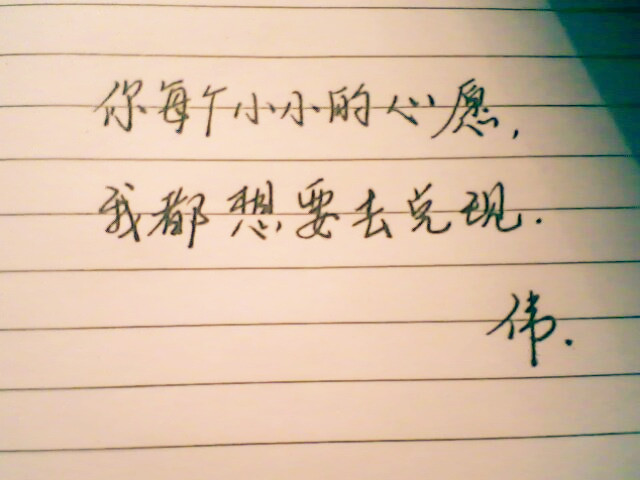 你每个小小的心愿,
我都想要去兑现.
伟.